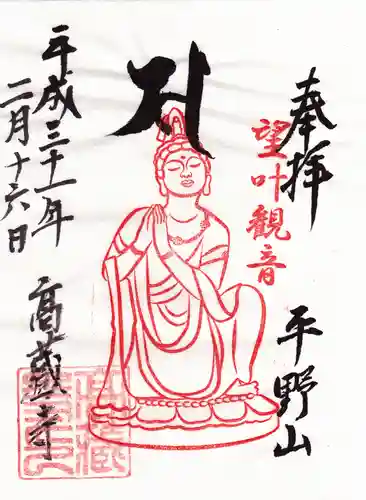 奉拝
平野山
望叶観音
平成三十一年
二月十六日
高蔵寺